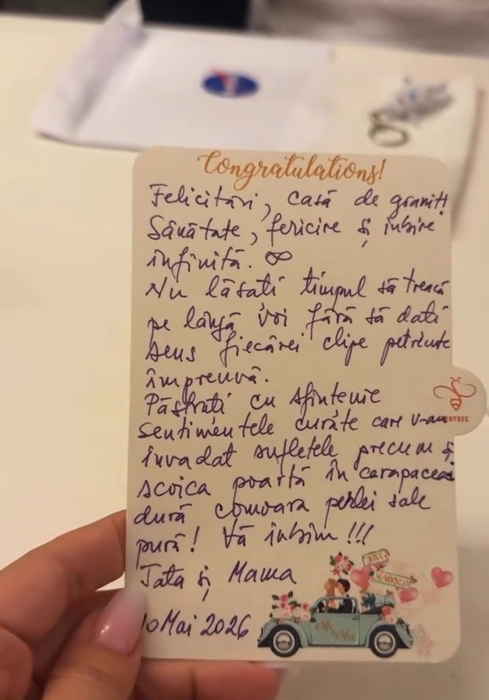 Congratulations!
Felicitări, casă de granit!
Sănătate, fericire și iubire
infinită. ∞
Nu lăsați timpul să treacă
pe lângă voi fără să dați
sens fiecărei clipe petrecute
împreună.
Păstrați cu sfințenie
sentimentele curate care v-au
invadat sufletele precum și
scoica poartă în carapacea
dură comoara perlei sale
pură! Vă iubim !!!
Tata și Mama
10 Mai 2026